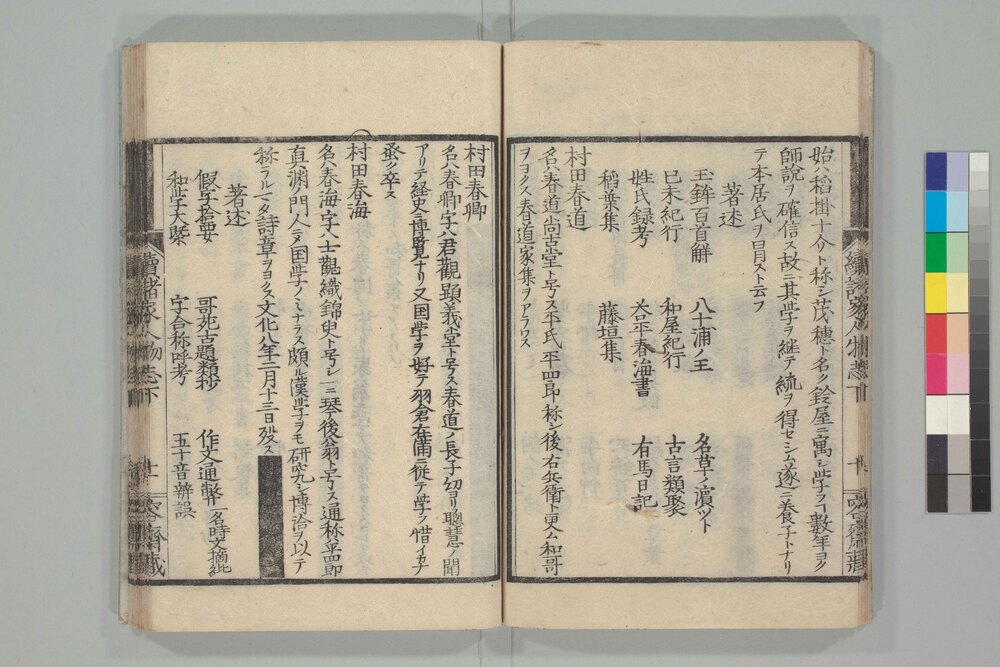 始ハ稻掛十介ト称シ茂穗ト名ク鈴屋ニ寓シ学フヿ数年ヨク
師說ヲ確信ス故ニ其学ヲ継テ統ヲ得セシム遂ニ養子トナリ
テ本居氏ヲ冒スト云フ
著述
玉鉾百首解 八十浦ノ玉 名草ノ濵ツト
已未紀行 和屋紀行 古言類聚
姓氏録考 荅平春海書 有馬日記
稻葉集 藤垣集
村田春道
名ハ春道尚古堂ト号ス平氏平四郎称シ後右兵衛ト更ム和哥
ヲヨクス春道家集ヲアラワス
村田春卿
名ハ春卿字ハ君觀顕義堂ト号ス春道ノ長子幼ヨリ聰慧ノ聞
アリテ経史ニ博覧ナリ又国学ヲ好テ羽倉在満ニ従テ学フ惜イカナ
蚤ク卒ス
村田春海
名ハ春海字ハ士觀織錦史ト号シ一ニ琴後翁ト号ス通称平四郎
真渕ノ門人ニメ国学ノミナラス頗ル漢学ヲモ研究シ博洽ヲ以テ
称ラル又詩章ヲヨクス文化八年二月十三日殁ス
著述
假字拾要 哥苑古題類抄 作文通弊一名時文摘紕
和学大槩 字合称呼考 五十音辨誤
續諸家人物志下